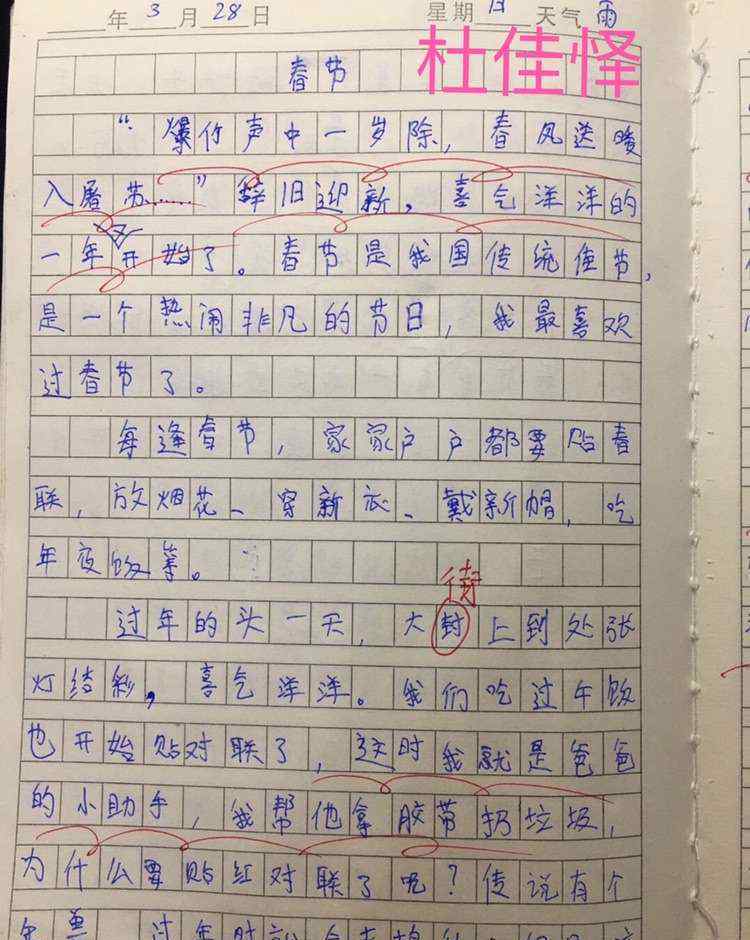 年3月28日 星期日天气雨
杜佳怿
春节
“爆竹声中一岁除,春风送暖
入屠苏……”辞旧迎新,喜气洋洋的
一年又开始了。春节是我国传统佳节,
是一个热闹非凡的节日,我最喜欢
过春节了。
每逢春节,家家户户都要贴春
联,放烟花、穿新衣、戴新帽,吃
年夜饭等。
待
过年的头一天,大封上到处张
灯结彩,喜气洋洋。我们吃过午饭
也开始贴对联了,这时我就是爸爸
的小助手,我帮他拿胶带扔垃圾,
为什么要贴红对联了呢?传说有个
年兽 过年时